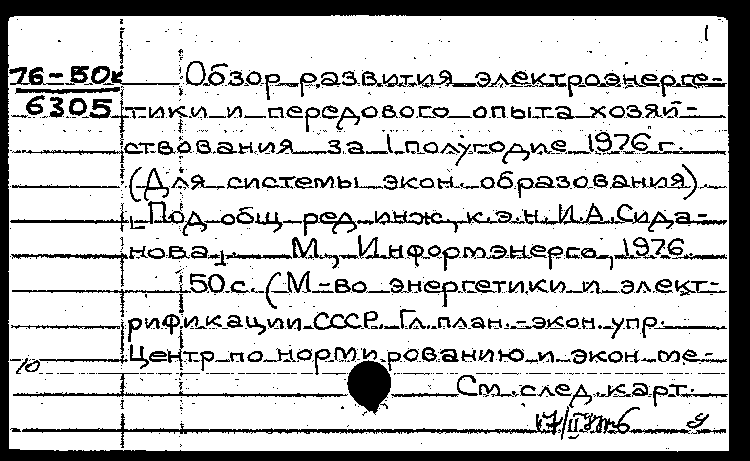 1
76-50к Обзор развития электроэнерге-
6305 тики и передового опыта хозяй-
ствования за 1 полугодие 1976 г.
(Для системы экон. образования)
Под общ. ред. инж., к.э.н. И.А. Сида-
нова. М., Информэнерго, 1976.
50с. (М-во энергетики и элект-
рификации СССР. Гл. план.-экон. упр.
Центр по нормированию и экон. ме-
10
См. след. карт.